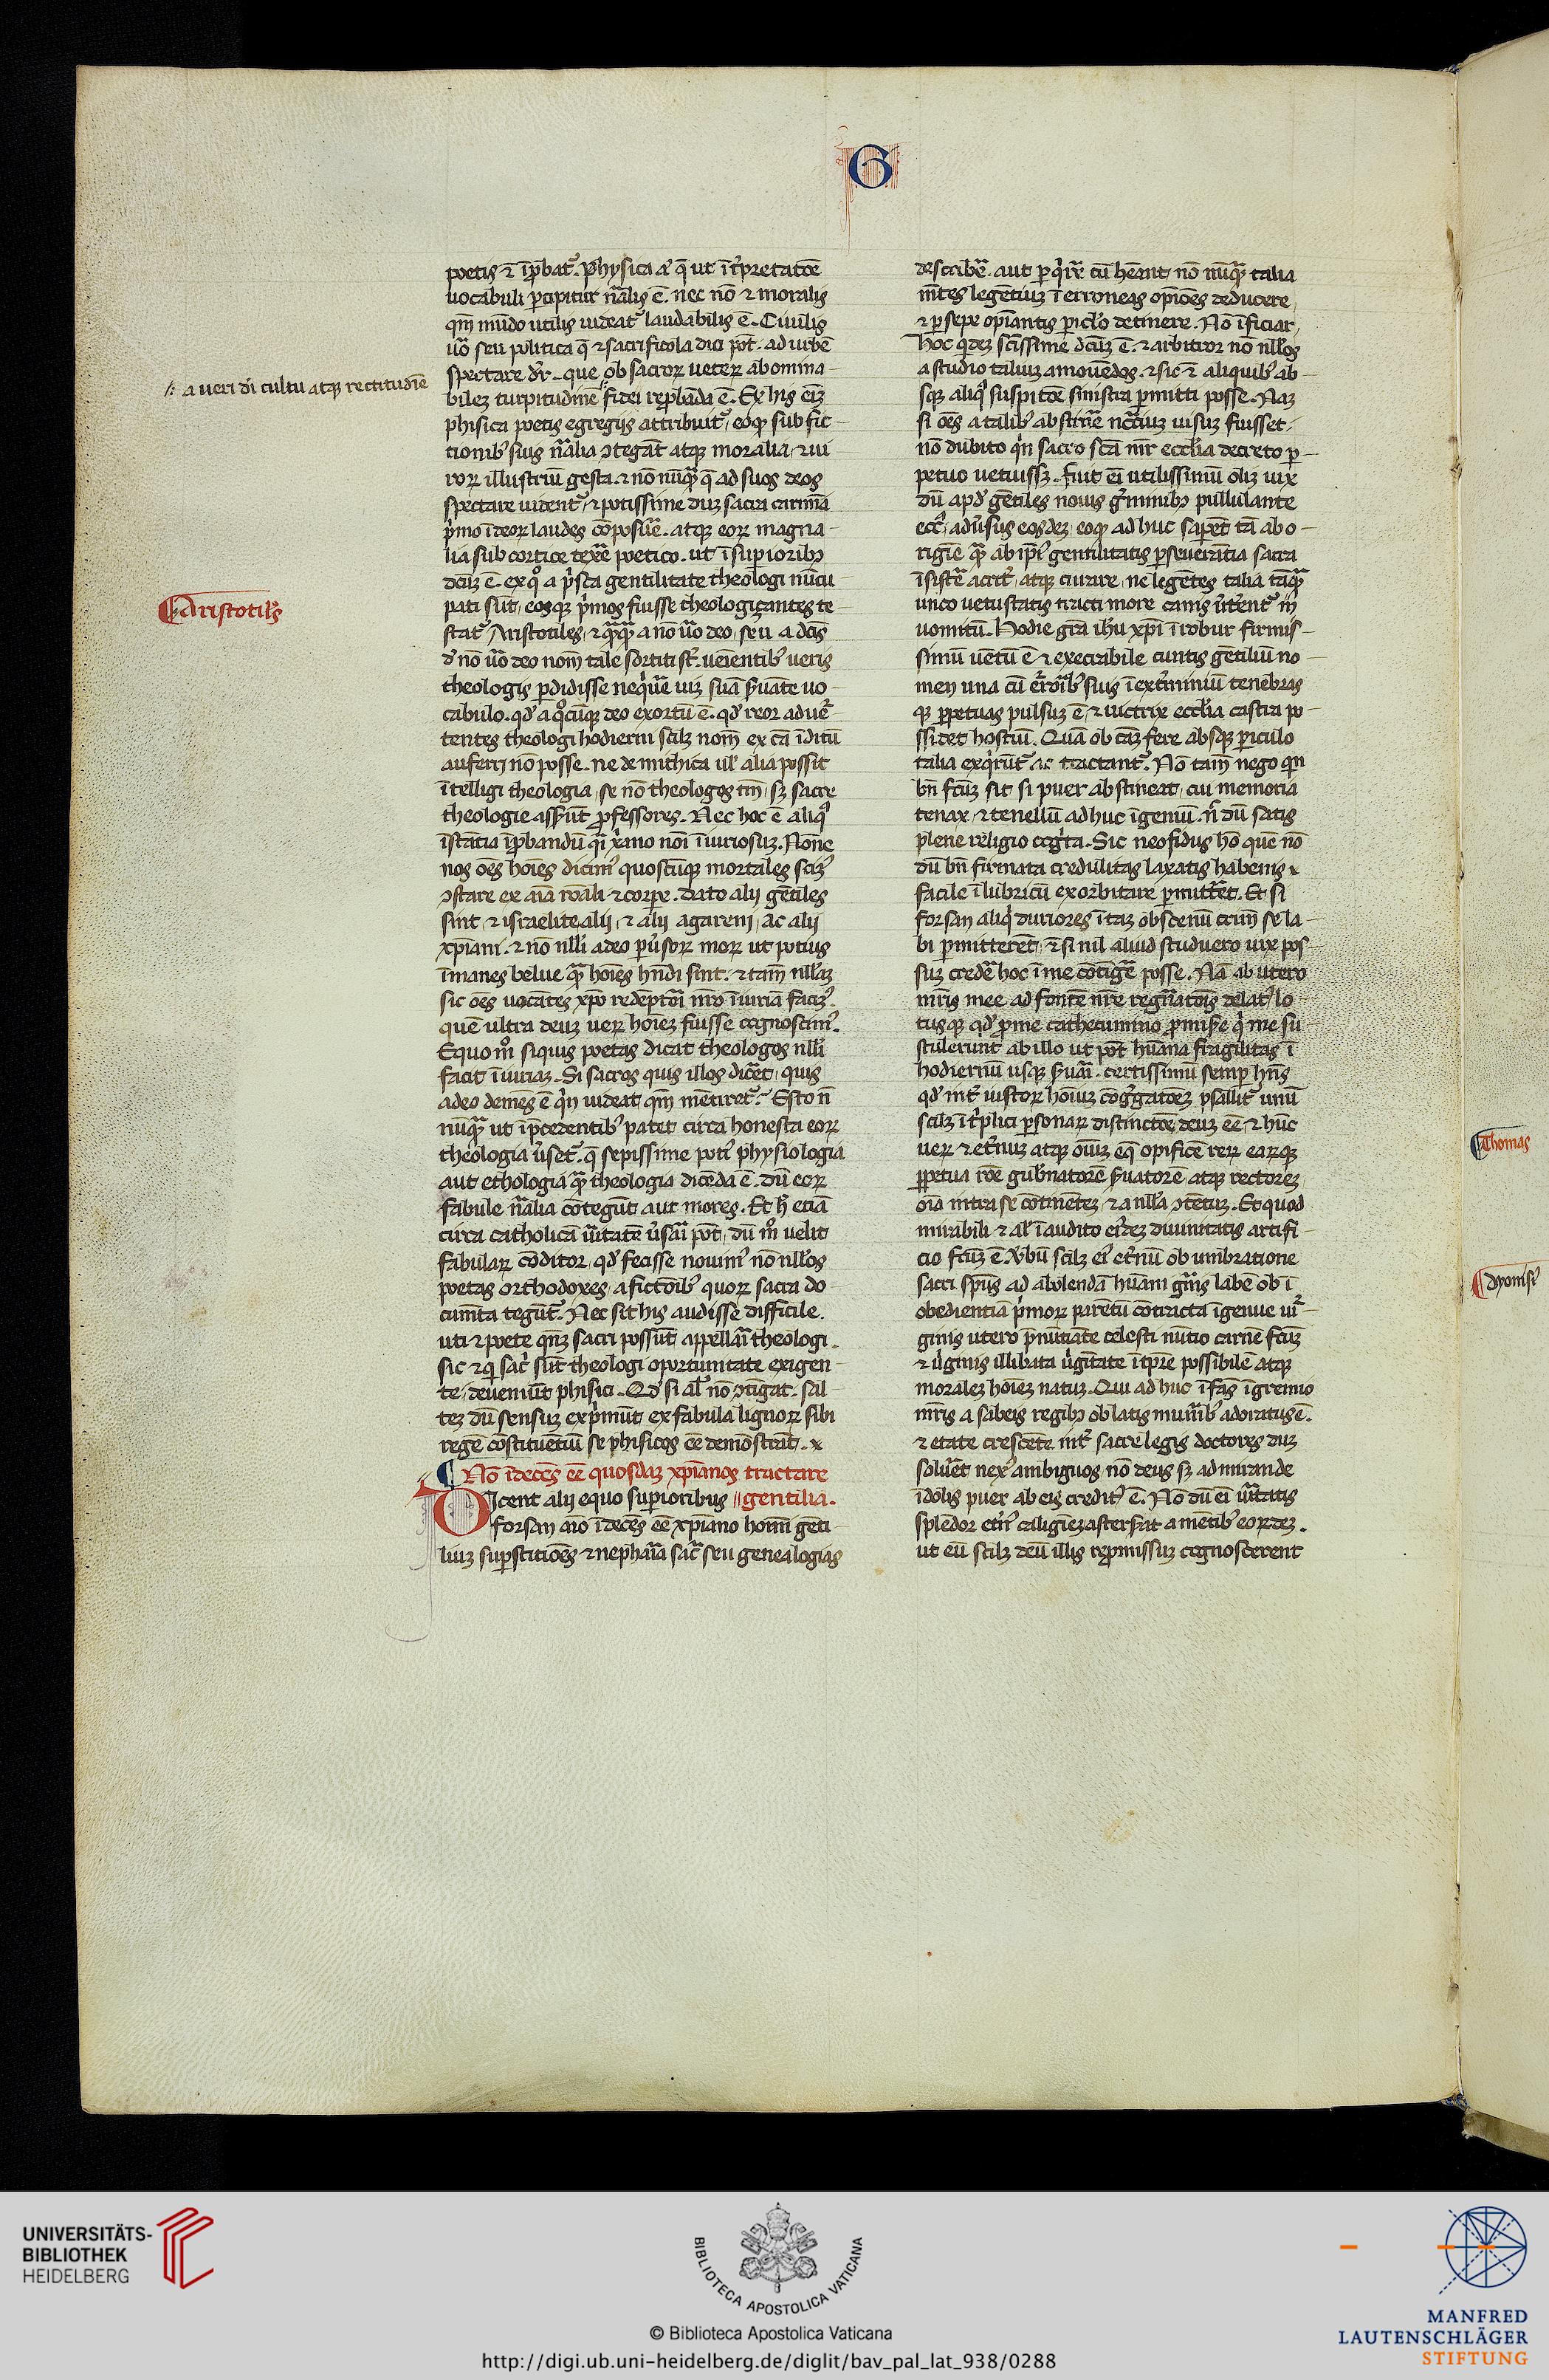 G
poetis ⁊ īꝓbat᷑. Physica aͨ q̄ ut īt̉pretatōe
uocabuli ꝑcipitur nālis ē. nec nō ⁊ moralis
qm̄ mūdo utilis uideat᷑ laudabilis ē. Ciuilis
uͦ seu politica q̄ ⁊ sacrificola dici pōt. ad urbē
spectare dr̄. que ob sacroꝝ ueteꝝ abomina-
bilez turpitudinē fidei reꝓbāda ē. Ex his eīz
⁒ a ueri di cultu atqꝫ rectitudīe
phisica poetis egregijs attribuit᷑, eoqꝫ sub fic
tionibꝰ suis nālia ꝯtegāt atqꝫ moralia, ⁊ ui
roꝝ illustriū gesta. ⁊ nō nūqꝫ q̄ ad suos deos
spectare uident᷑, ⁊ potissime duz sacra carmīa
p̉mo ī deoꝝ laudes cōposuē. atqꝫ eoꝝ magna-
lia sub cortice texē poetico. ut ī supioribꝫ
dc̄uz ē. ex qͦ a p̉sca gentilitate theologi nūcu-
pati sūt, eosqꝫ p̉mos fuisse theologizantes te-
Aristotiles
stat᷑ Aristotiles, ⁊ qꝫqꝫ a nō uͦ deo, seu a dc̄is
d̓ nō uͦ deo nom̄ tale sortiti st̄. ueīentibꝰ ueris
theologis ꝑdidisse neq̉uē uiz suā s̓uāte uo-
cabulo. qd̓ a qͦcūqꝫ deo exortū ē. qd̓ reor aduer̄-
tentes theologi hodierni scilz nom̄ ex cā īditū
auferrj nō posse. ne de mithica ul̓ alia possit
ītelligi theologia, se nō theologos tm̄, sꝫ sacre
theologie ass̓ūt ꝓfessores. Nec hoc ē aliqͣ
īstātia īꝓbandū qͣ xāno noī īuriosuz. Nōne
nos oēs hoīes dicimꝰ quoscūqꝫ mortales scimꝰ
ꝯstare ex aīa rōali ⁊ corꝑe. dato alij gētiles
sint, ⁊ israelite alij, ⁊ alij agareni, ac alij
xp̄iani. ⁊ nō nlli adeo ꝑuersoꝝ moꝝ ut potius
īmanes belue qꝫ hoīes hn̄di sint. ⁊ tam̄ nullaz
sic oēs uocātes xp̄o redēptōi nr̄o īiuriā facimꝰ.
quē ultra deuz ueꝝ hoīez fuisse cognoscimꝰ.
Equo mͦ siquis poetas dicat theologos nlli
facit īiuriaz. Si sacros quis illos dicēt, quis
adeo demēs ē q̉n uideat, qm̄ mētiret᷑. Esto nō
nūqꝫ ut ī p̄cedentibꝰ patet circa honesta eoꝝ
theologia uerset᷑. q̄ sepissime potiꝰ physiologia
aut ethologia qꝫ theologia dicēda ē. dū eoꝝ
fabule nālia cōtegūt aut mores. Et h̓ etiā
circa catholicā ueritatē uersari pōt, dū mͦ uelit
fabulaꝝ cōditor, qd̓ fecisse nouimꝰ nō nullos
poetas orthodoxos, a fictōibꝰ quoꝝ sacra do
cumēta tegūt᷑. Nec sit his audisse difficile.
uti ⁊ poete qn̄qꝫ sacri possūt appellari theologi.
sic ⁊ q̉ sacri sūt theologi oportunitate exigen-
te, deueniūt phisici. Qd̓ si al̓r nō ꝯtīgat. sal-
tez dū sensuz exp̉mūt ex fabula lignoꝝ sibi
regē cōstituētiū se phisicos eē demōstrāt.
¶ Nō īdecēs eē quosdaz xp̄ianos tractare
gentilia.
Dicent alij equo suꝑioribus
forsan aīo īdecēs eē xp̄iano homī genti
liuz suꝑstitiōes ⁊ nephāria sacra seu genealogias
describē. aut ꝑq̉rē cū hēant, nō nūqꝫ talia
mētes legētiuz ī erroneas opīoēs deducere,
⁊ ꝑsepe opiantis ꝑiclo detinere. Nō īficiar,
hoc q̉dez scissime dc̄uz ē. ⁊ arbitror nō nllos
a studio taliuz amouēdos. ⁊ sic ⁊ aliquibꝰ ab-
sqꝫ aliqͣ suspitōe sinistra ꝑmitti posse. Naz
si oēs a talibꝰ abstinē nc̄ariuz uisuz fuisset,
nō dubito q̉n sacro scā mr̄ eccl̓ia decreto ꝑ-
petuo uetuissꝫ. Fuit eī utilissimū oliz uix
dū apd̓ gētiles nouis germinibꝫ pullulante
eccl̓, aduersus eosdez, eoqꝫ adhuc saperēt tā ab o-
rigīe qꝫ ab ip̄iꝰ gentilitatis ꝑseuerātia sacra
īsistē acrit̓, atqꝫ curare, ne legētes talia tāqꝫ
unco uetustatis tracti more canis ut̓ent᷑ in
uomitū. Hodie grā ih̓u xp̄i ī robur firmis-
simū uētū ē ⁊ execrabile cuntis gētiliū no-
men una cū erroibꝰ suis ī ext̓miniū tenebras
qꝫ ꝑpetuas pulsuz ē, ⁊ uictrix eccl̓ia castra po-
ssidet hostiū. Quā ob caz fere absqꝫ ꝑiculo
talia exq̉rūt᷑ ac tractant᷑. Nō tam̄ nego q̉n
bn̄ fc̄uz sit si puer abstineat, cui memoria
tenax, ⁊ tenellū adhuc īgeniū. nō dū satis
plene religio cognita. Sic neofidus hō quē nō
dū bn̄ firmata credulitas laxatis habenis
facile ī lubricū exorbitare ꝑmittēt. Et si
forsan aliqͥ duriores ītaz obscenū crim̄ se la-
bi ꝑmitterēt, ⁊ si nil aliud studuero uix pos-
suz credē hoc ī me cōtigē posse. Nā ab utero
mr̄is mee ad fontē nr̄e regn̄atōis delatꝰ lo-
tusqꝫ qd̓ ꝓ me cathecumino ꝓmisē q̉ me su-
stulerunt ab illo ut pōt huāna fragilitas ī
hodiernū usqꝫ s̓uaui. certissimū semꝑ hn̄s
qd̓ int̓ iustoꝝ hoīuz cōgregatōez psallit᷑ unū
scilz ī triplici ꝑsonaꝝ distinctōe, deuz eē ⁊ hūc
ueꝝ ⁊ et̓nuz atqꝫ oīuz eqꝫ opificē reꝝ eaꝝqꝫ
ꝑpetua rōe gub̓natorē s̓uatorē atqꝫ rectorez,
oīa intra se cōtinētez, ⁊ a nulla ꝯtētuz. Et quod
mirabili ⁊ al̓ īaudito eiꝰdez diuinitatis artifi-
cio fc̄uz ē. V̓bū scilz eiꝰ et̓nū ob umbratione
sacri sp̄us ad abolendā huāni gn̄is labē ob ī
obedientia p̉moꝝ parētū cōtracta īgenue uir̄-
ginis utero p̄nūtiāte celesti nutio carnē fc̄uz
⁊ uirginis illibata uirgītate ītꝑe possibile atqꝫ
moralez hoīez natuz. Qui adhuc īfās ī gremio
mr̄is a sabeis regibꝫ oblatis munibꝰ adoratus ē.
⁊ etate crescēte int̓ sacre legis doctores duz
soluēt nexꝰ ambiguos, nō deus sꝫ admirande
īdolis puer ab eis creditꝰ ē. Nō dū eī ueritatis
splēdor et̓nꝰ caligīez asters̓at a mētibꝰ eoꝝdez.
ut eū scilz deū illis repmissuz cognoscerent
Thomas
dyonisiꝰ
UNIVERSITÄTS-
BIBLIOTHEK
HEIDELBERG
BIBLIOTECA APOSTOLICA VATICANA
© Biblioteca Apostolica Vaticana
http://digi.ub.uni-heidelberg.de/diglit/bav_pal_lat_938/0288
MANFRED
LAUTENSCHLÄGER
STIFTUNG